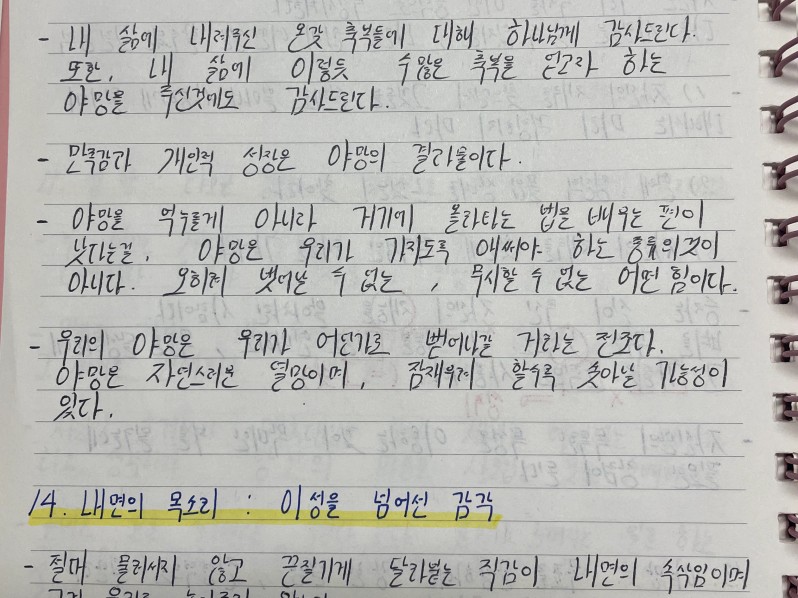 - 내 삶에 내려주신 온갖 축복들에 대해 하나님께 감사드린다.
또한, 내 삶에 이렇듯 수많은 축복을 얻고자 하는
야망을 주신것에도 감사드린다.
- 만족감과 개인적 성장은 야망의 결과물이다.
- 야망을 억누를게 아니라 거기에 올라타는 법을 배우는 편이
낫다는걸. 야망은 우리가 가지도록 애써야 하는 종류의것이
아니다. 오히려 벗어날 수 없는, 무시할 수 없는 어떤 힘이다.
- 우리의 야망은 우리가 어딘가로 뻗어나갈 거라는 전조다.
야망은 자연스러운 열망이며, 잠재우려 할수록 솟아날 가능성이
있다.
14. 내면의 목소리 : 이성을 넘어선 감각
- 절대 물러서지 않고 끈질기게 달라붙는 직감이 내면의 속삭임이며